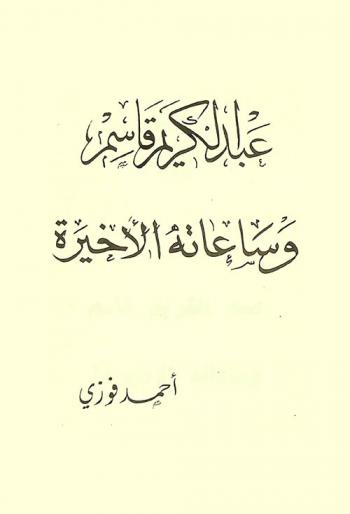 عبد الكريم قاسم
وساعاته الأخيرة
أحمد فوزي